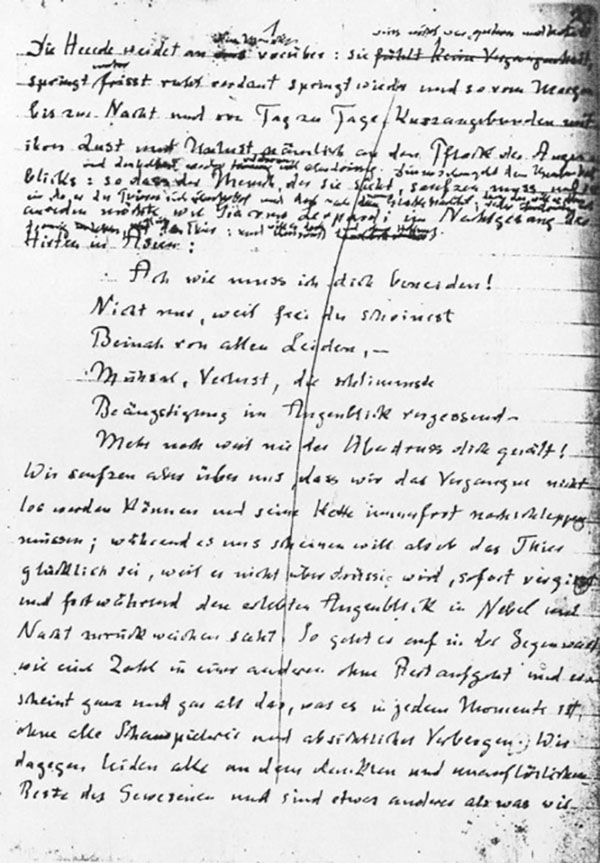 1
Die Heerde weidet an uns vorüber: sie fühlt keine Vergangenheit,
springt frisst ruht verdaut springt wieder und so vom Morgen
bis zur Nacht und von Tag zu Tage, kurz angebunden mit
ihrer Lust und Unlust, nämlich an den Pflock des Augen
blicks: so dass der Mensch, der sie sieht, seufzen muss und sie
anreden möchte wie Giacomo Leopardi im Nachtgesang des
Hirten in Asien:
Ach wie muss ich dich beneiden!
Nicht nur, weil frei du scheinest
Beinah von allen Leiden, —
Mühsal, Verlust, die schlimmste
Beängstigung im Augenblick vergessend —
Mehr noch weil nie der Überdruss dich quält!
Wir seufzen aber über uns, dass wir das Vergangne nicht
los werden können und seine Kette immerfort nachschleppen
müssen; während es uns scheinen will als ob das Thier
glücklich sei, weil es nicht überdrüssig wird, sofort vergisst
und fortwährend den erlebten Augenblick in Nebel und
Nacht zurück weichen sieht. So geht es auf in der Gegenwart
wie eine Zahl in einer anderen ohne Rest aufgeht und
scheint ganz und gar als das, was es in jedem Momente ist,
ohne alle Schauspielerei und absichtliches Verbergen. Wir
dagegen leiden alle an dem dunklen und unauflöslichen
Reste des Gewesenen und sind etwas anderes als was wir